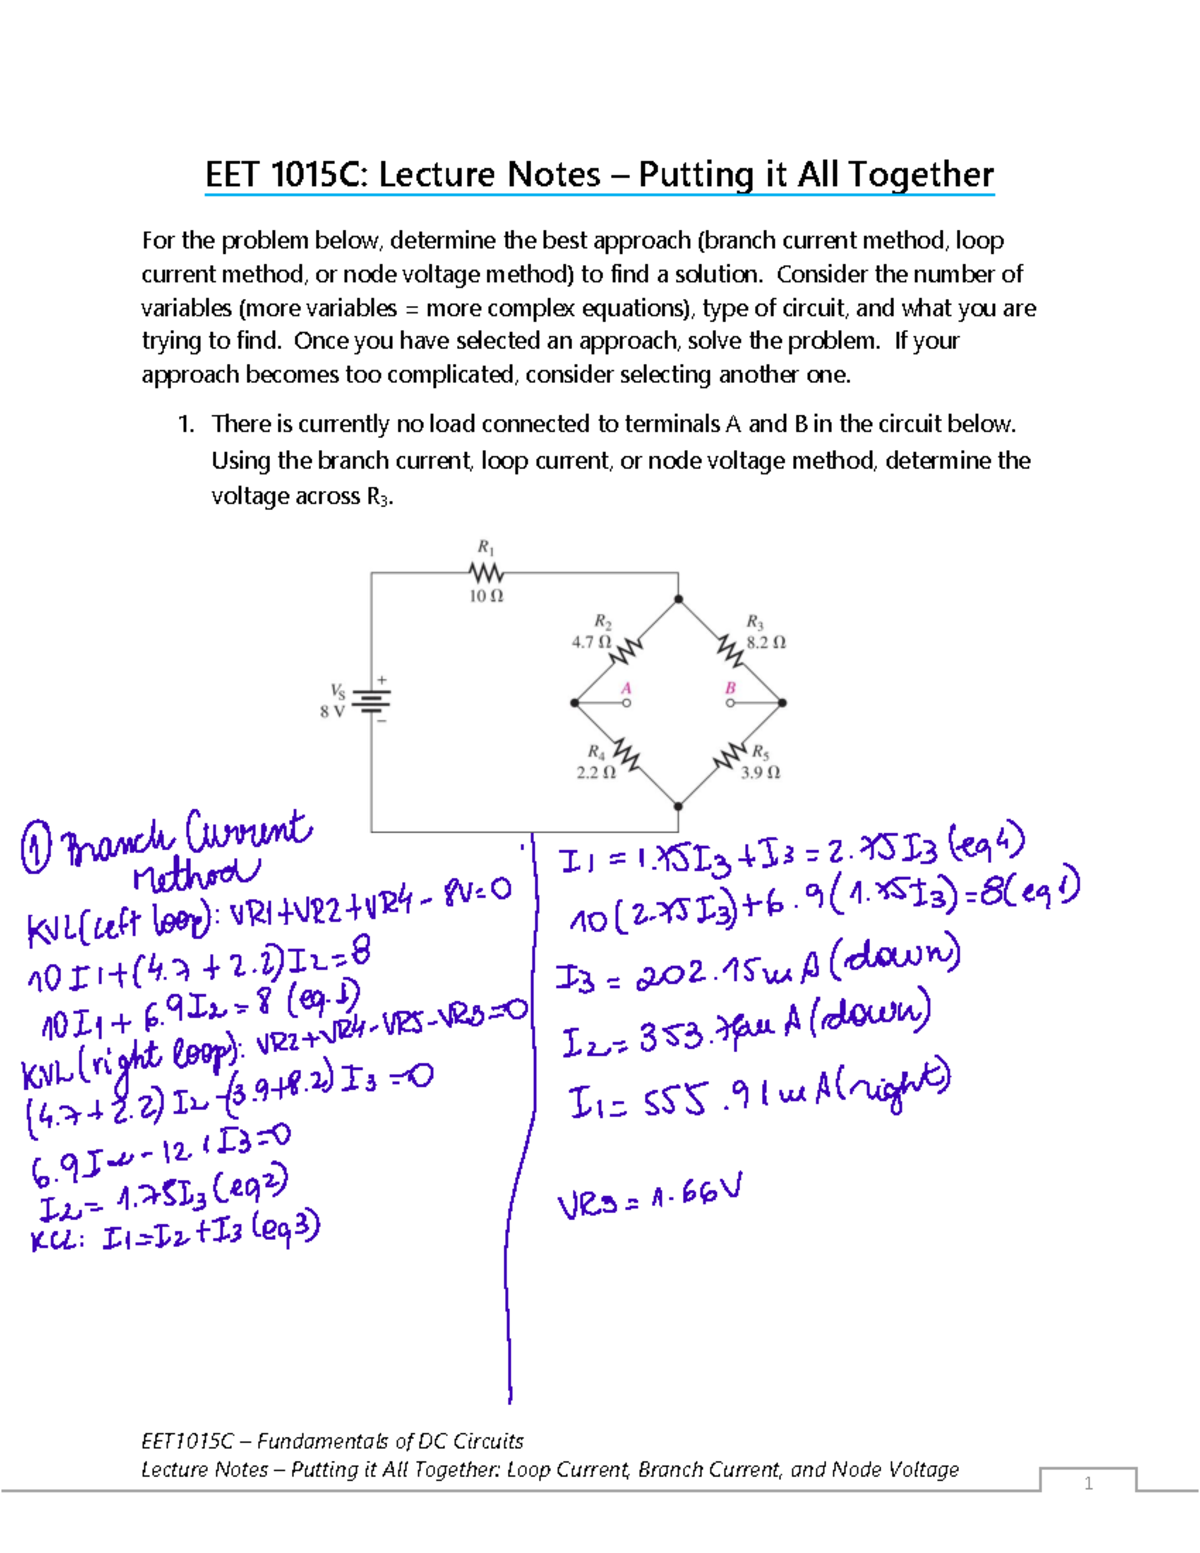 EET 1015C: Lecture Notes – Putting it All Together
For the problem below, determine the best approach (branch current method, loop
current method, or node voltage method) to find a solution. Consider the number of
variables (more variables = more complex equations), type of circuit, and what you are
trying to find. Once you have selected an approach, solve the problem. If your
approach becomes too complicated, consider selecting another one.
1. There is currently no load connected to terminals A and B in the circuit below.
Using the branch current, loop current, or node voltage method, determine the
voltage across R3.
R1
10 Ω
R2
4.7 Ω
R3
8.2 Ω
A
B
VS
8 V
+
–
R4
2.2 Ω
R5
3.9 Ω
① Branch Current
Method
KVL(Left loop): VR1+VR2+VR4-8V=0
10I1+(4.7+2.2)I2=8
10I1+6.9I2=8 (eq.1)
KVL(right loop): VR2+VR4-VR5-VR3=0
(4.7+2.2)I2-(3.9+8.2)I3=0
6.9I2-12.1I3=0
I2=1.75I3(eq2)
KCL: I1=I2+I3(eq3)
I1=1.75I3+I3=2.75I3(eq4)
10(2.75I3)+6.9(1.75I3)=8(eq1)
I3=202.15mA(down)
I2=353.76mA(down)
I1=555.91mA(right)
VR3=1.66V
EET1015C – Fundamentals of DC Circuits
Lecture Notes – Putting it All Together: Loop Current, Branch Current, and Node Voltage
1